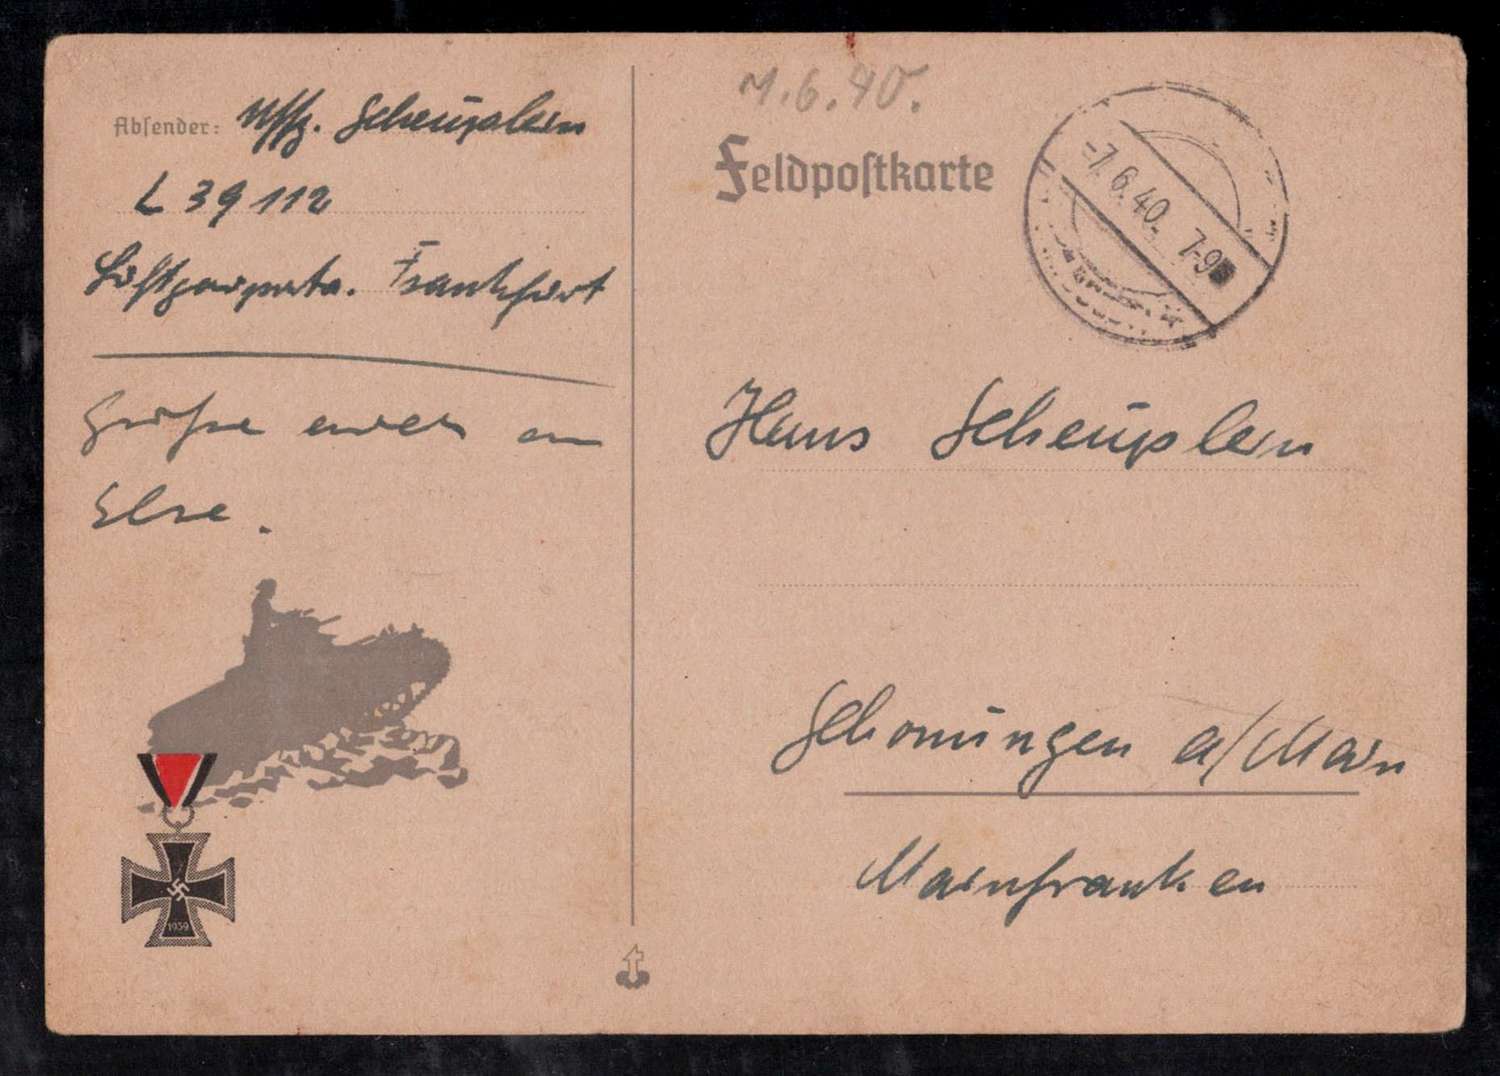 Absender: Uffz. Scheuplein
L 39 112
Luftgauposta. Frankfurt
Grüße an
Else.
1939
7.6.40.
Feldpostkarte
-7.6.40. 7-9
Hans Scheuplein
Schonungen a/Main
Mainfranken